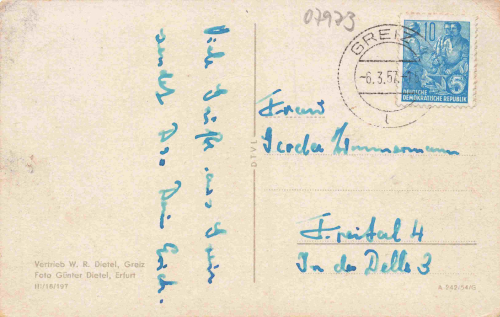 07973
GREIZ
-6.3.57.-
10
DEUTSCHE
DEMOKRATISCHE REPUBLIK
5
Viele Grüße aus Greiz
sendet
Frau
Gerda Zimmermann
Freital 4
In der Delle 3
DTVL
Vertrieb W. R. Dietel, Greiz
Foto Günter Dietel, Erfurt
III/18/197
A 242/54/G